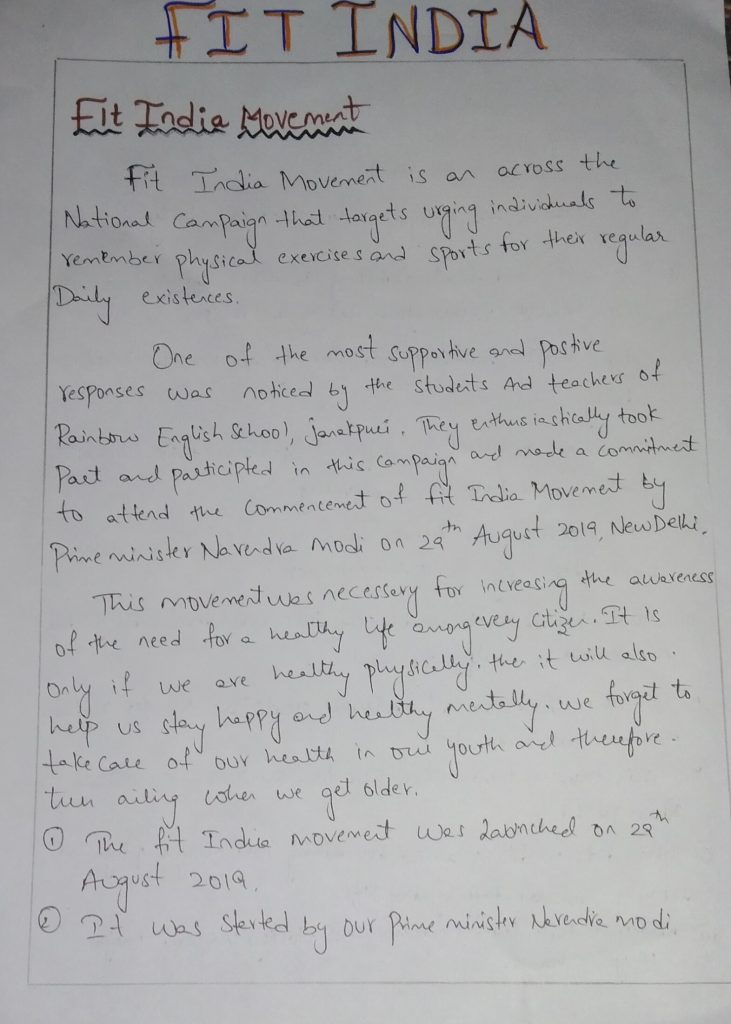 FIT INDIA
Fit India Movement
Fit India Movement is an across the
National Campaign that targets urging individuals to
remember physical exercises and sports for their regular
Daily existences.
One of the most supportive and postive
responses was noticed by the students And teachers of
Rainbow English School, janakpuri. They enthusiastically took
Part and participted in this campaign and made a commitment
to attend the commencement of fit India Movement by
Prime minister Narendra modi on 29th August 2019, New Delhi.
This movement was necessary for increasing the awareness
of the need for a healthy life among every citizen. It is
only if we are healthy physically. then it will also.
help us stay happy and healthy mentally. we forget to
take care of our health in our youth and therefore.
turn ailing when we get older.
① The fit India movement was Launched on 29th
August 2019.
② It was started by our Prime minister Narendra modi.